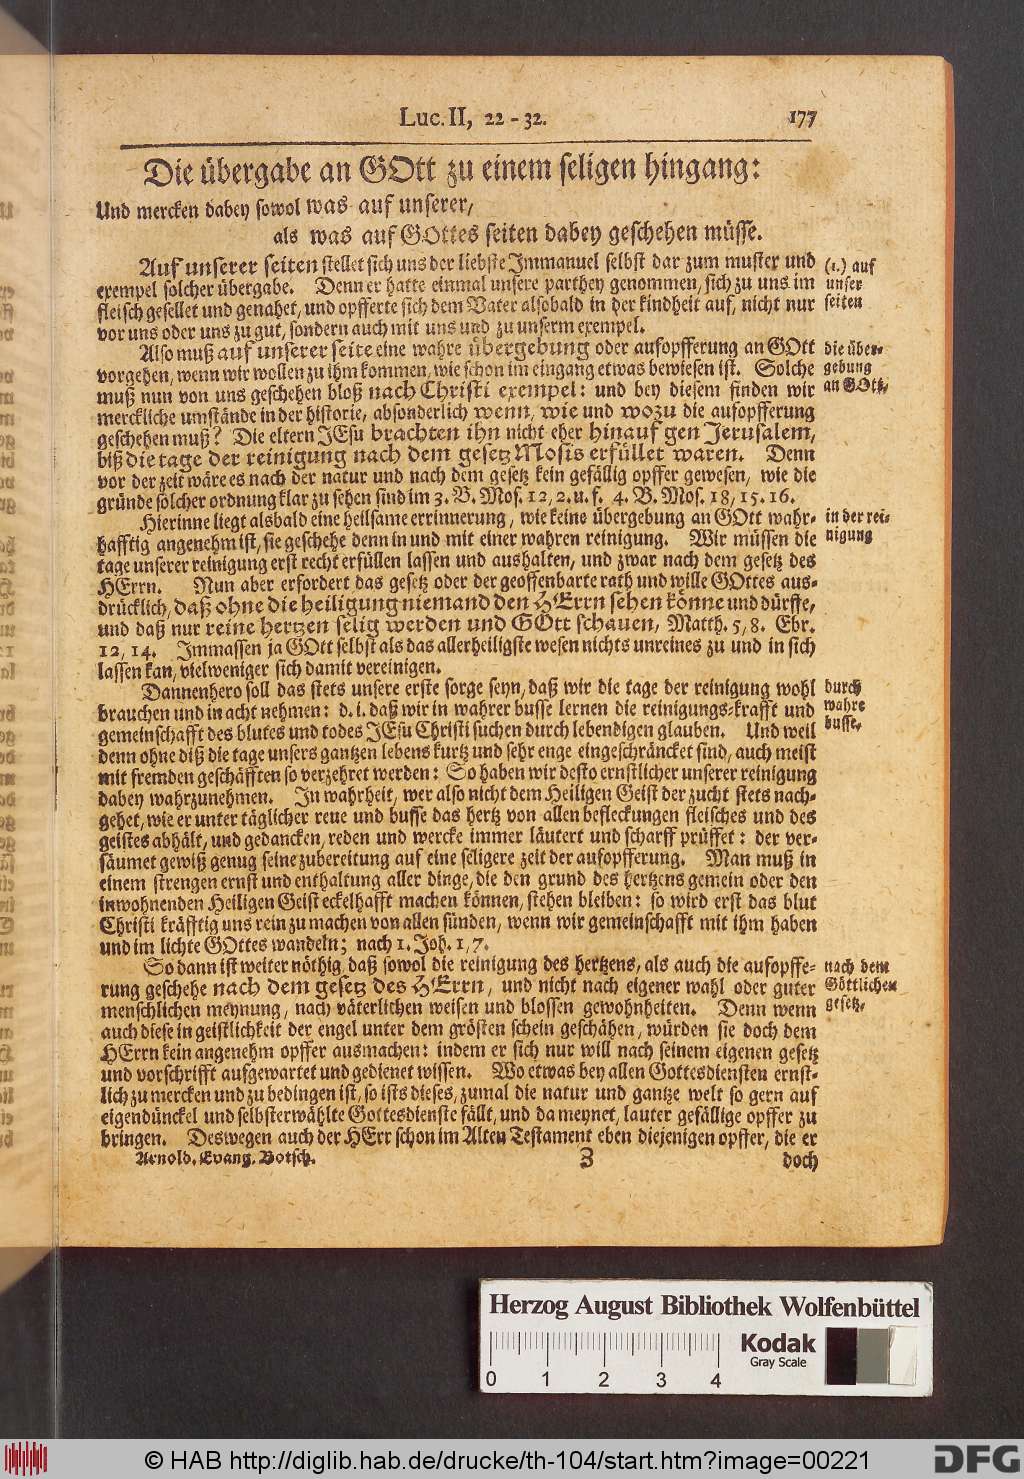 Luc. II, 22 - 32. 177
Die übergabe an GOtt zu einem seligen hingang:
Und mercken dabey sowol was auf unserer,
als was auf GOttes seiten dabey geschehen müsse.
Auf unserer seiten stellet sich uns der liebste Immanuel selbst dar zum muster und
exempel solcher übergabe. Denn er hatte einmal unsere parthey genommen, sich zu uns im
fleisch gesellet und genahet, und opfferte sich dem Vater alsobald in der kindheit auf, nicht nur
vor uns oder uns zu gut, sondern auch mit uns und zu unserm exempel.
(1.) auf
unser
seiten
Also muß auf unserer seite eine wahre übergebung oder aufopfferung an GOtt
vorgehen, wenn wir wollen zu ihm kommen, wie schon im eingang etwas bewiesen ist. Solche
muß nun von uns geschehen bloß nach Christi exempel: und bey diesem finden wir
merckliche umstände in der historie, absonderlich wenn, wie und wozu die aufopfferung
geschehen muß? Die eltern JEsu brachten ihn nicht eher hinauf gen Jerusalem,
biß die tage der reinigung nach dem gesetz Mosis erfüllet waren. Denn
vor der zeit wäre es nach der natur und nach dem gesetz kein gefällig opffer gewesen, wie die
gründe solcher ordnung klar zu sehen sind im 3. B. Mos. 12, 2. u. f. 4. B. Mos. 18, 15. 16.
die über-
gebung
an GOtt,
Hierinne liegt alsbald eine heilsame errinnerung, wie keine übergebung an GOtt wahr-
hafftig angenehm ist, sie geschehe denn in und mit einer wahren reinigung. Wir müssen die
tage unserer reinigung erst recht erfüllen lassen und aushalten, und zwar nach dem gesetz des
HErrn. Nun aber erfordert das gesetz oder der geoffenbarte rath und wille GOttes aus-
drücklich, daß ohne die heiligung niemand den HErrn sehen könne und dürffe,
und daß nur reine hertzen selig werden und GOtt schauen, Matth. 5, 8. Ebr.
12, 14. Immassen ja GOtt selbst als das allerheiligste wesen nichts unreines zu und in sich
lassen kan, vielweniger sich damit vereinigen.
in der rei-
nigung
Dannenhero soll das stets unsere erste sorge seyn, daß wir die tage der reinigung wohl
brauchen und in acht nehmen: d. i. daß wir in wahrer busse lernen die reinigungs-krafft und
gemeinschafft des blutes und todes JEsu Christi suchen durch lebendigen glauben. Und weil
denn ohne diß die tage unsers gantzen lebens kurtz und sehr enge eingeschräncket sind, auch meist
mit fremden geschäfften so verzehret werden: So haben wir desto ernstlicher unserer reinigung
dabey wahrzunehmen. In wahrheit, wer also nicht dem Heiligen Geist der zucht stets nach-
gehet, wie er unter täglicher reue und busse das hertz von allen befleckungen fleisches und des
geistes abhält, und gedancken, reden und wercke immer läutert und scharff prüffet: der ver-
säumet gewiß genug seine zubereitung auf eine seligere zeit der aufopfferung. Man muß in
einem strengen ernst und enthaltung aller dinge, die den grund des hertzens gemein oder den
inwohnenden Heiligen Geist eckelhafft machen können, stehen bleiben: so wird erst das blut
Christi kräfftig uns rein zu machen von allen sünden, wenn wir gemeinschafft mit ihm haben
und im lichte GOttes wandeln; nach 1. Joh. 1, 7.
durch
wahre
busse,
So dann ist weiter nöthig, daß sowol die reinigung des hertzens, als auch die aufopffe-
rung geschehe nach dem gesetz des HErrn, und nicht nach eigener wahl oder guter
menschlichen meynung, nach väterlichen weisen und blossen gewohnheiten. Denn wenn
auch diese in geistlichkeit der engel unter dem grösten schein geschähen, würden sie doch dem
HErrn kein angenehm opffer ausmachen: indem er sich nur will nach seinem eigenen gesetz
und vorschrifft aufgewartet und gedienet wissen. Wo etwas bey allen Gottesdiensten ernst-
lich zu mercken und zu bedingen ist, so ists dieses, zumal die natur und gantze welt so gern auf
eigendünckel und selbsterwählte Gottesdienste fällt, und da meynet, lauter gefällige opffer zu
bringen. Deswegen auch der HErr schon im Alten Testament eben diejenigen opffer, die er
nach dem
Göttlichen
gesetz,
Arnold. Evang. Botsch. Z doch
Herzog August Bibliothek Wolfenbüttel
0 1 2 3 4
Kodak
Gray Scale
© HAB http://diglib.hab.de/drucke/th-104/start.htm?image=00221
DFG